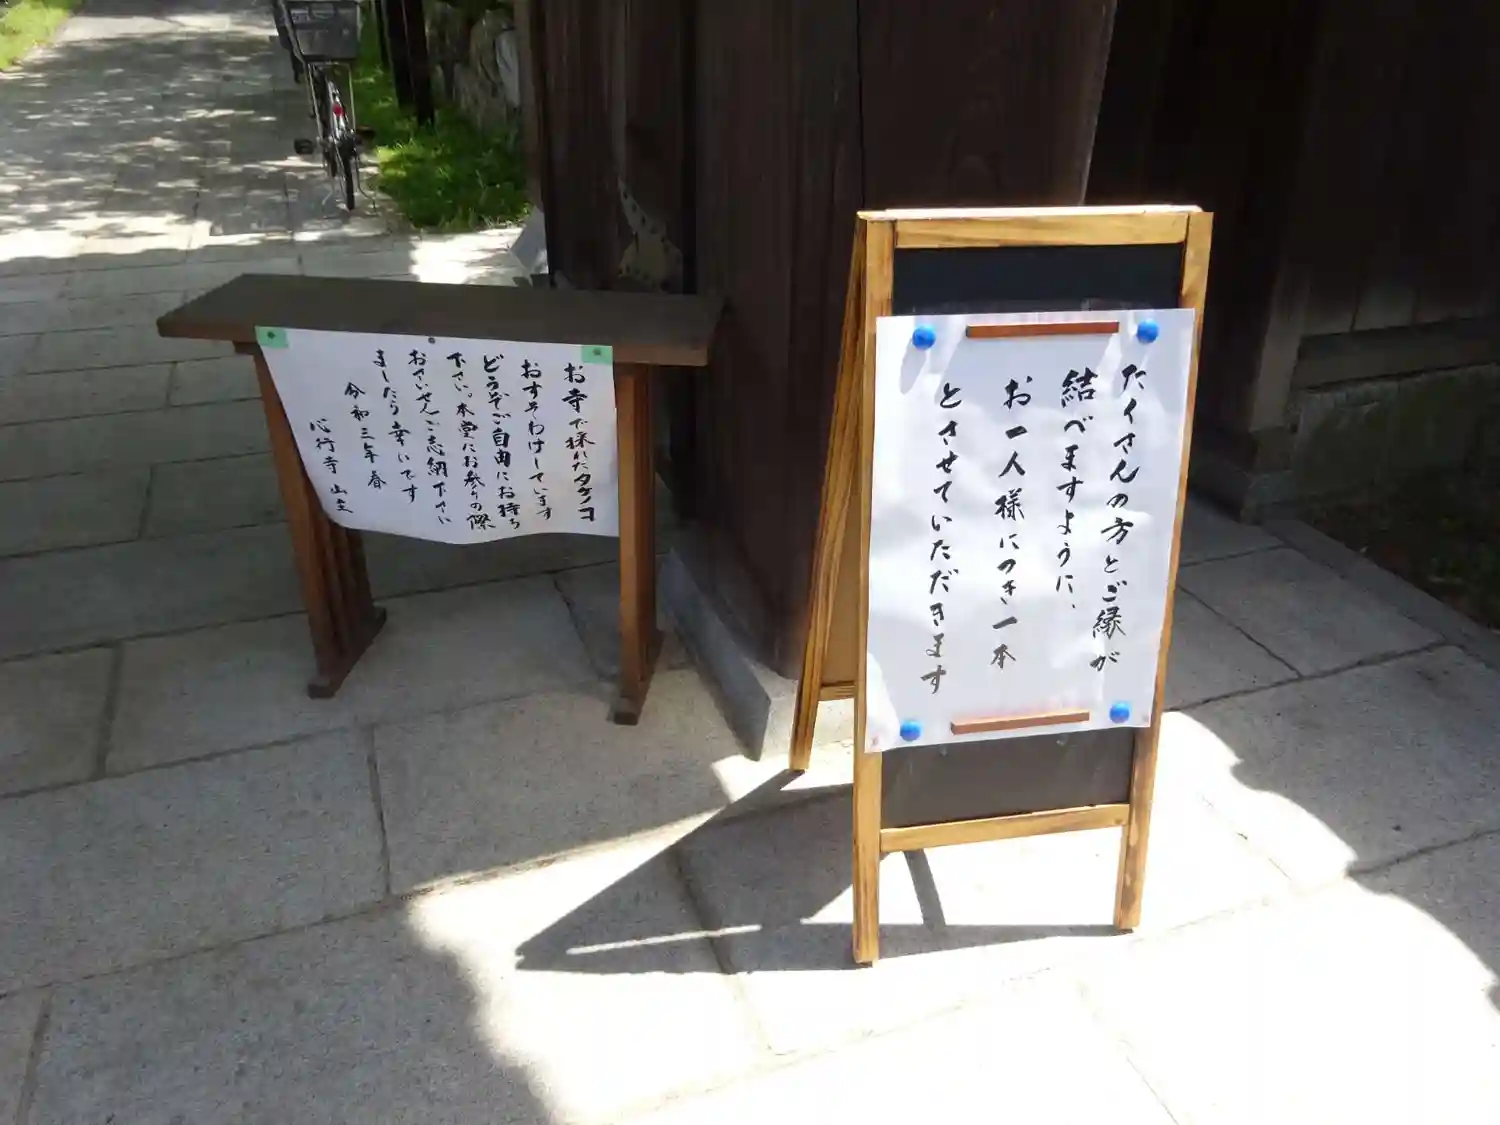 お寺で採れたタケノコ
おすそわけしています
どうぞご自由にお持ち
下さい。本堂にお参りの際
おさいせんご志納下さい
ましたら幸いです
令和三年春
心行寺 山主
たくさんの方とご縁が
結べますように、
お一人様につき一本
とさせていただきます